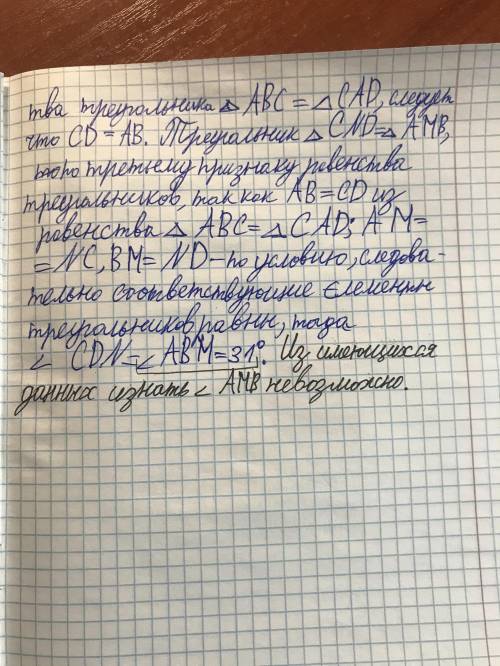 тва треугольника △ ABC = △ CAD, следует
что CD = AB. Треугольник △ CND = △ AMB,
по третьему признаку равенства
треугольников, так как AB = CD из
равенства △ ABC = △ CAD; AM =
= NC, BM = ND - по условию, следова-
тельно соответствующие елементы
треугольников равны, тогда
∠ CDN = ∠ ABM = 31°. Из имеющихся
данных узнать ∠ AMB невозможно.